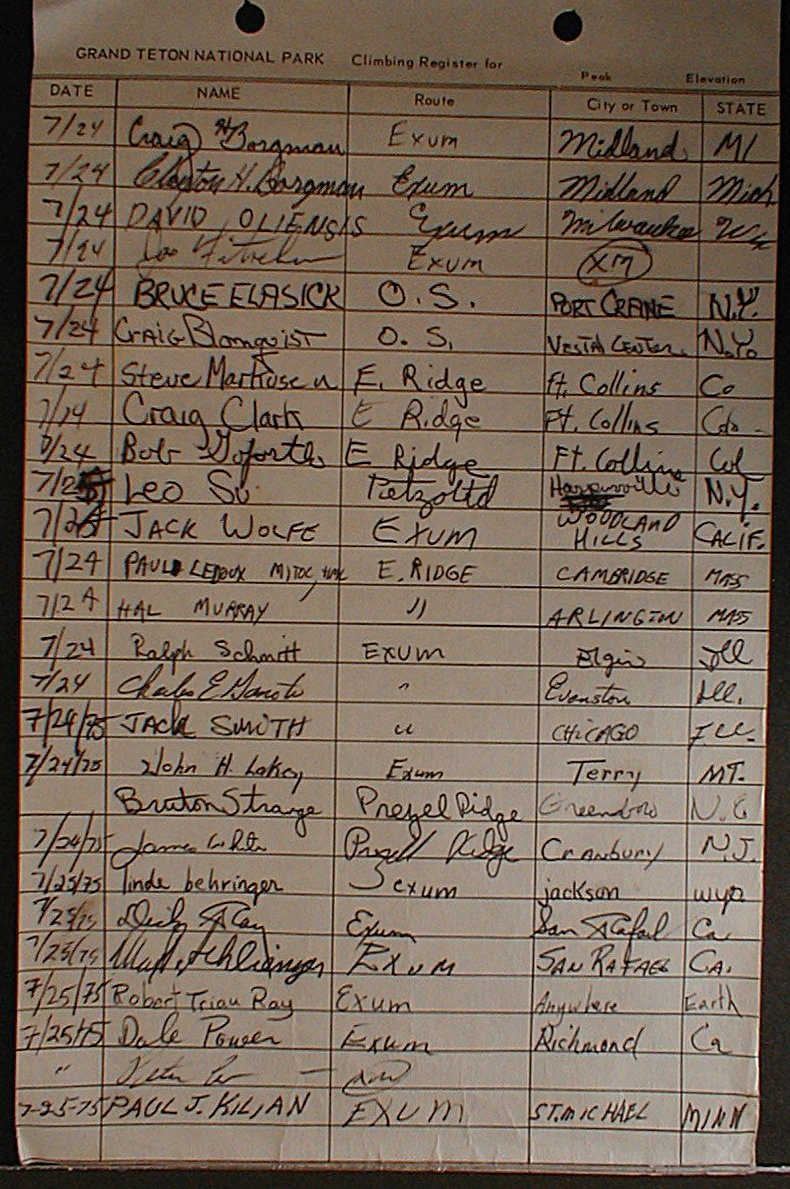 GRAND TETON NATIONAL PARK Climbing Register for
Peak Elevation
DATE NAME Route City or Town STATE
7/24 Craig H Borgman Exum Midland MI
7/24 Clayton H. Borgman Exum Midland Mich
7/24 DAVID OLIENSIS Exum Milwaukee
7/24 Joe Exum XM
7/24 BRUCE ELASICK O.S. PORT CRANE N.Y.
7/24 CRAIG Blomquist O.S. VESTAL CENTER. N.Y.
7/24 Steve Markusen E. Ridge ft. Collins Co
7/24 Craig Clark E Ridge Ft. Collins Colo.
7/24 Bob Goforth E Ridge Ft. Collins Col
7/25 Leo Su Petzoltd Harpursville N.Y.
7/25 JACK WOLFE EXUM WOODLAND HILLS CALIF.
7/24 PAUL LEDOUX MITOC E. RIDGE CAMBRIDGE MASS
7/24 HAL MURRAY " ARLINGTON MASS
7/24 Ralph Schmitt EXUM Elgin Ill
7/24 Charles E " Evanston Ill.
7/24/75 JACK SMITH " CHICAGO ILL.
7/24/75 John H. Lakey Exum Terry MT.
Bruton Strange Prezel Ridge Greensboro N.C
7/24/75 James White Prezell Ridge Cranbury N.J.
7/25/75 linde behringer exum jackson wyo
7/25/75 Exum San Rafael Ca
7/25/75 Exum SAN RAFAEL CA.
7/25/75 Robert Ray Exum Anywhere Earth
7/25/75 Dale Power Exum Richmond Ca
"
7-25-75 PAUL J. KILIAN EXUM ST. MICHAEL MINN